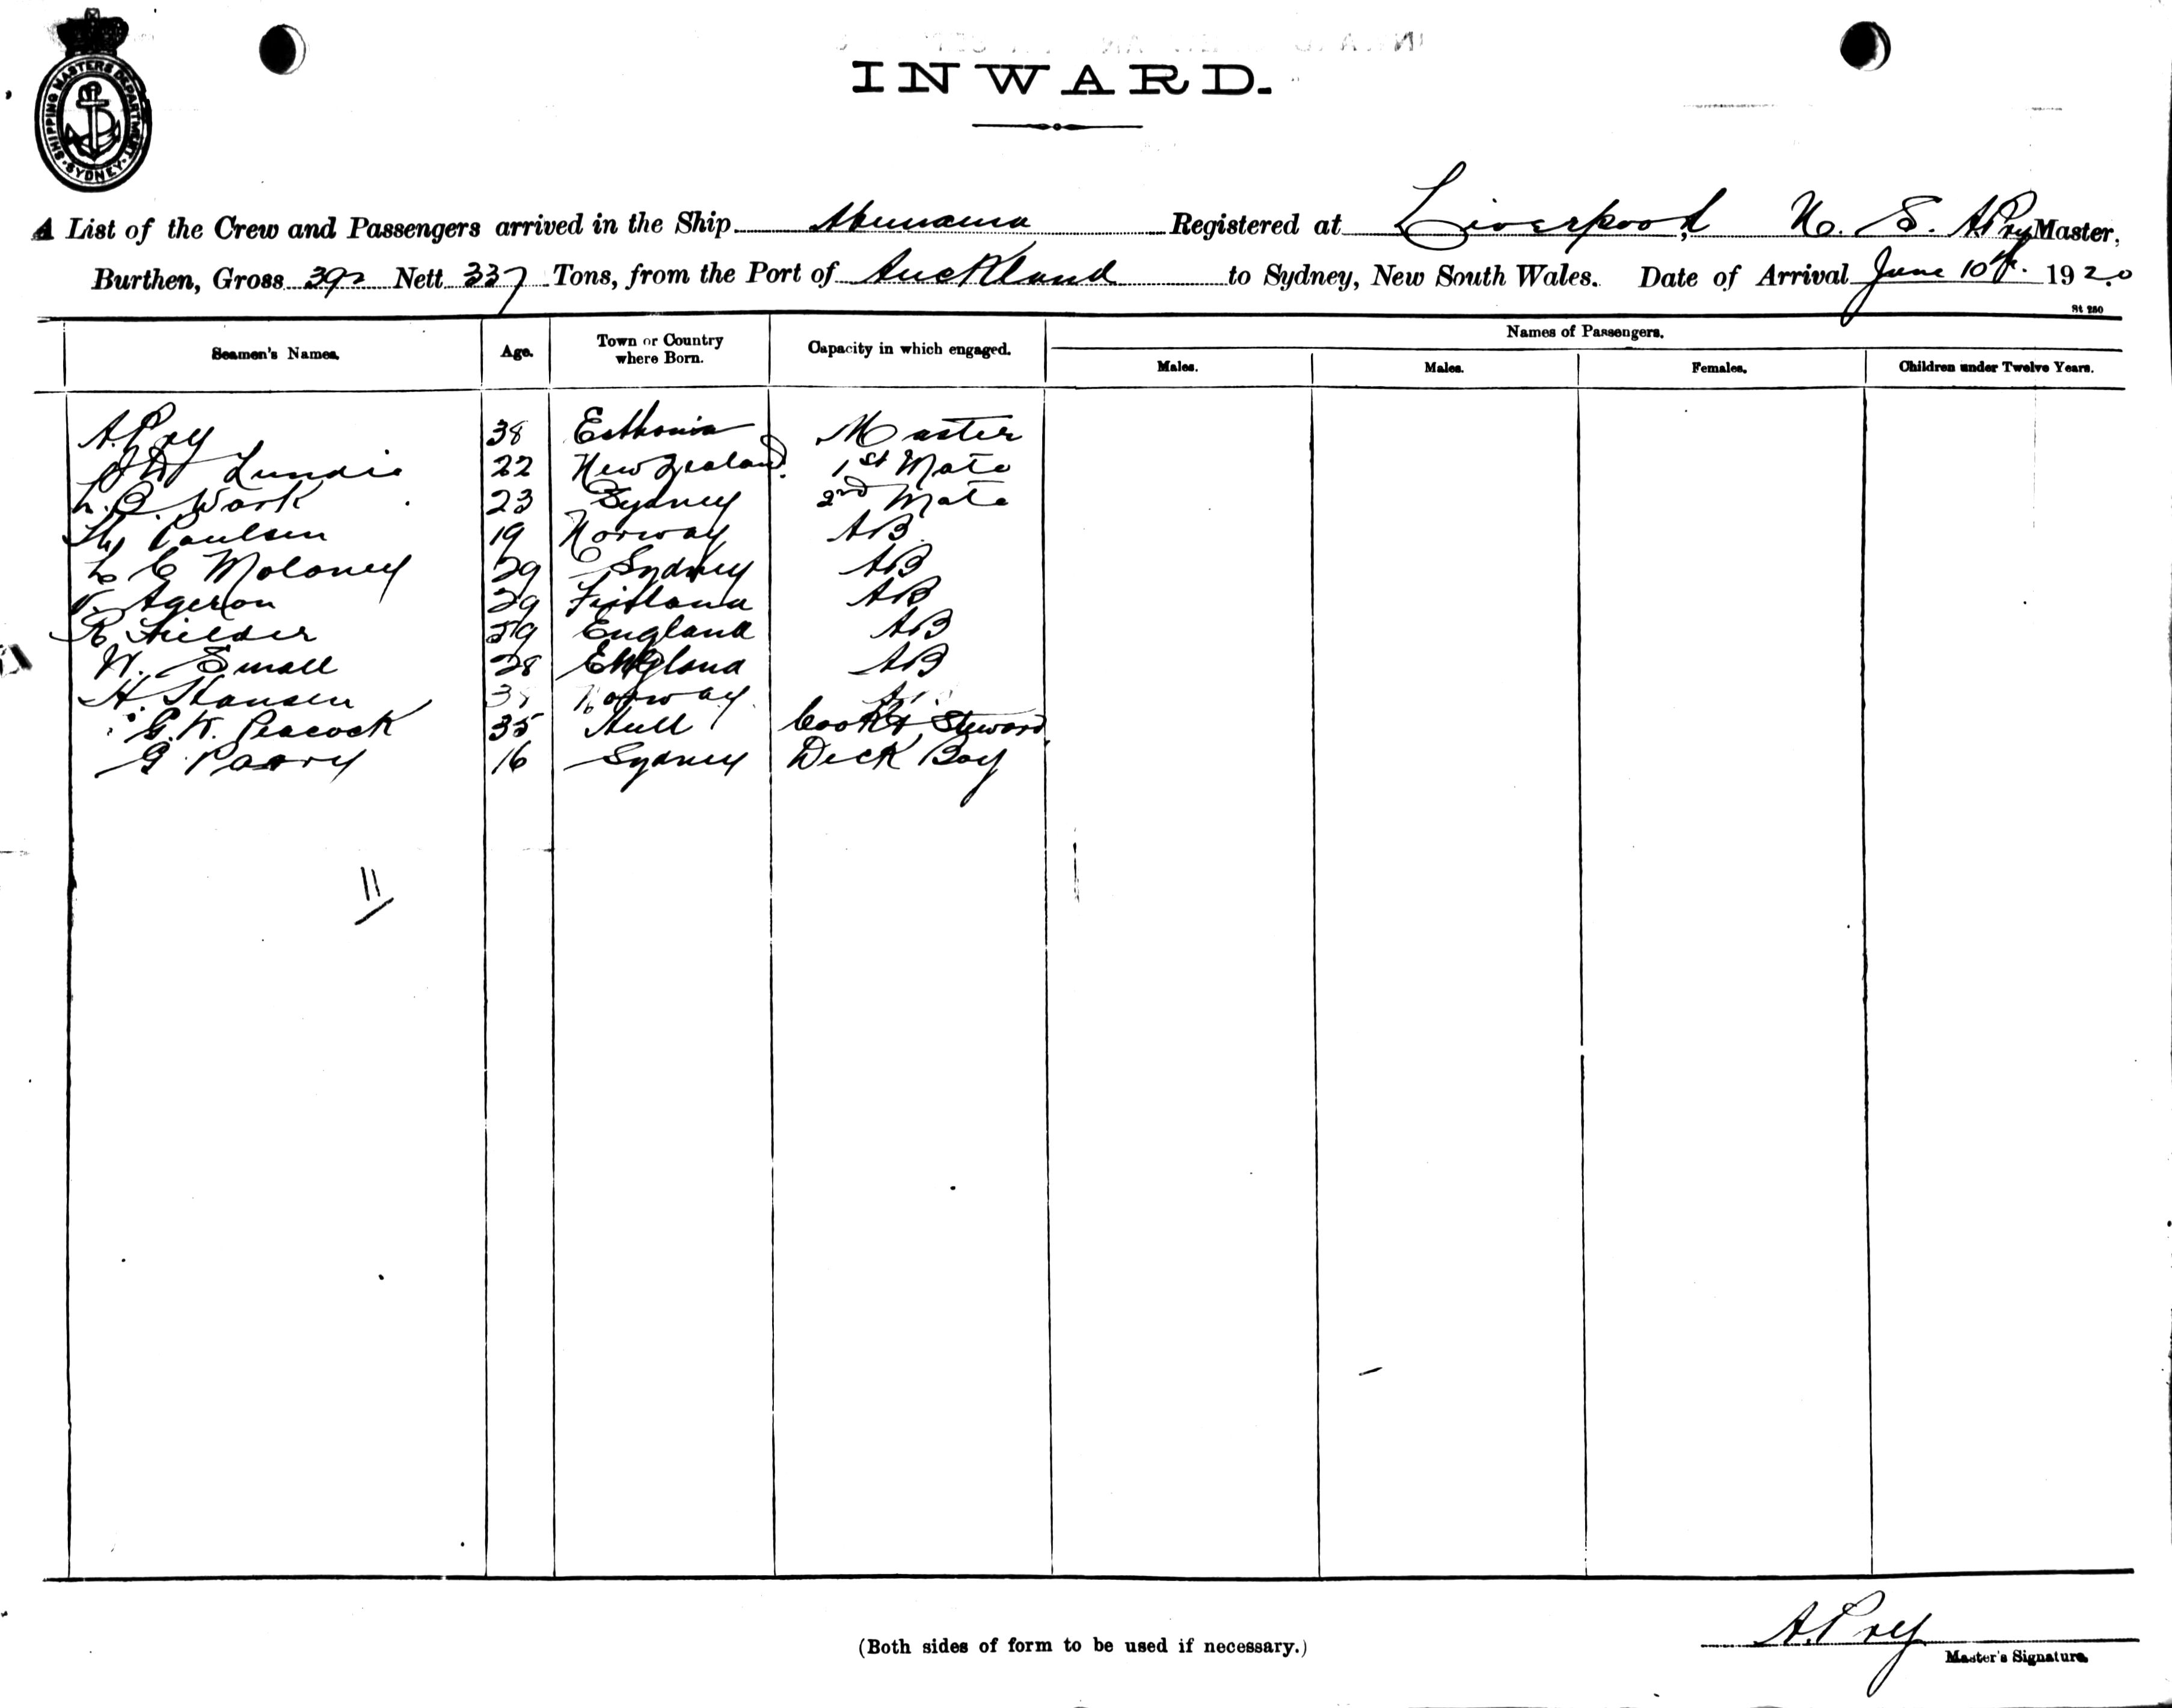 SHIPPING MASTERS DEPARTMENT
SYDNEY
INWARD.
A List of the Crew and Passengers arrived in the Ship Abemama Registered at Liverpool, N. S. A Pry Master,
Burthen, Gross 392 Nett 337 Tons, from the Port of Auckland to Sydney, New South Wales. Date of Arrival June 10th. 1920
St 280
Seamen's Names. Age. Town or Country where Born. Capacity in which engaged. Names of Passengers.
Males. Males. Females. Children under Twelve Years.
A. Pry 38 Esthonia Master
Lundie 22 New Zealand. 1st Mate
Wark 23 Sydney 2nd Mate
Paulsen 19 Norway AB.
C Moloney 29 Sydney AB
Ageron 29 AB
R. Fielder 59 England AB
W. Small 28 England AB
H. Hansen Norway.
G. W. Peacock 35 Hull Cook & Steward
G. Parry 16 Sydney Deck Boy
11
(Both sides of form to be used if necessary.)
A. Pry
Master's Signature.